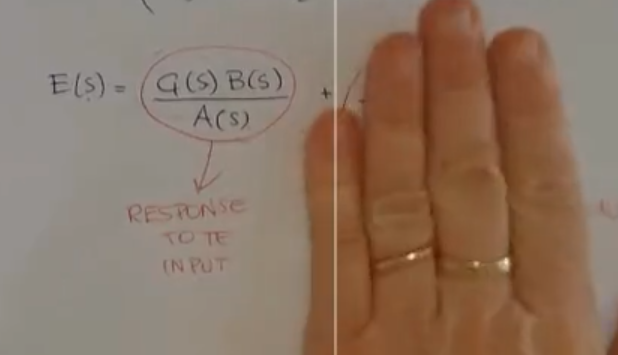 E(s) = G(s) B(s) / A(s) +
RESPONSE
TO TE
INPUT